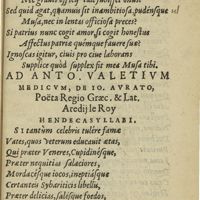 Sed quid agat, quamuis sit inambitiosa, pudensque
Musa, nec in lentas officiosa preces?
Si patrius nunc cogit amor, si cogit honestus
Affectus patria quemque fauere suæ?
Ignoscas igitur, ciuis pro ciue laborans
Supplice quòd supplex sit mea Musa tibi.
AD ANTO. VALETIVM
MEDICVM, DE IO. AVRATO,
Poëta Regio Græc. & Lat.
Atedij le Roy
HENDECASYLLABI.
SI tantùm celebris tulêre famæ
Vates, quos veterum educauit ætas,
Qui præter Veneres, Cupidinésque,
Præter nequitias salaciores,
Mordacésque iocos, ineptiásque
Certanteis Sybariticis libellis,
Præter delicias, salésque fœdos,